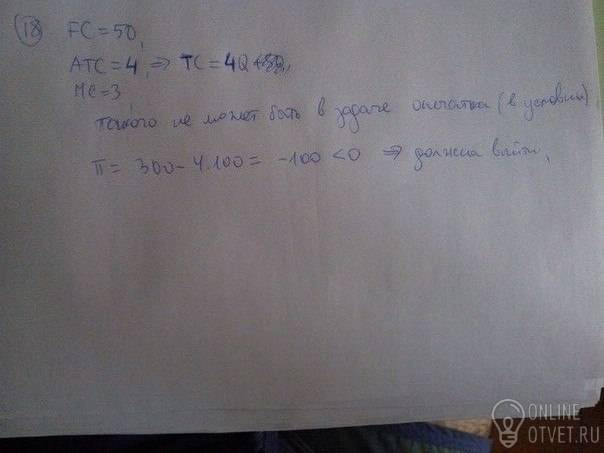 18 FC = 50,
ATC = 4, ⇒ TC = 4Q
MC = 3
такого не может быть в задаче опечатка (в условии),
π = 300 - 4.100 = -100 < 0 ⇒ должна выйти,
ONLINE
OTVET.RU